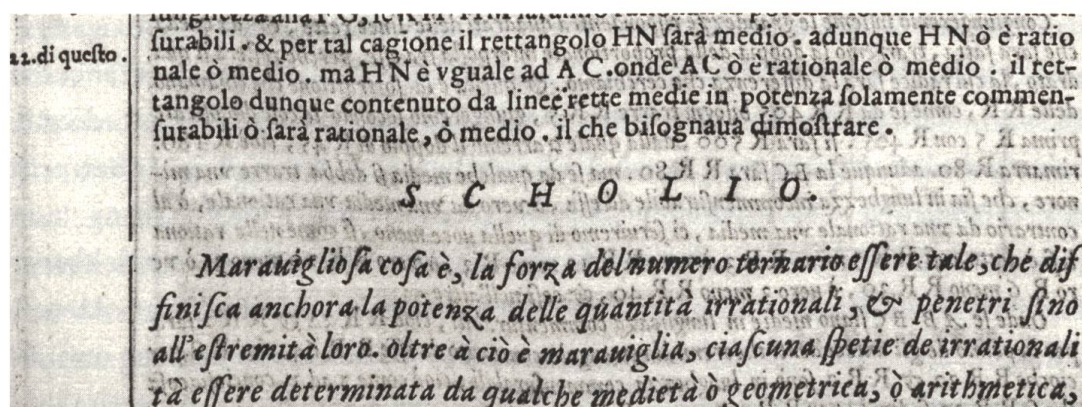 surabili. & per tal cagione il rettangolo HN sarà medio. adunque HN ò è ratio
22. di questo.
nale ò medio. ma HN è vguale ad AC. onde AC ò è rationale ò medio. il ret-
tangolo dunque contenuto da linee rette medie in potenza solamente commen-
surabili ò sarà rationale, ò medio. il che bisognaua dimostrare.
SCHOLIO.
Marauigliosa cosa è, la forza del numero ternario essere tale, che dif
finisca anchora la potenza delle quantità irrationali, & penetri sino
all'estremità loro. oltre à ciò è marauiglia, ciascuna spetie de irrationali
tà essere determinata da qualche medietà ò geometrica, ò arithmetica,